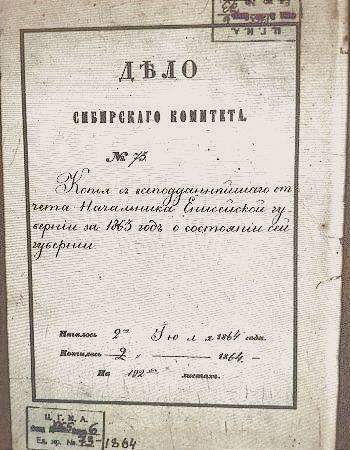 ДѢЛО
СИБИРСКАГО КОМИТЕТА.
№ 73
Копія съ всеподданнѣйшаго от
чета Начальника Енисейской гу-
берніи за 1863 годъ о состояніи сей
губерніи
Началось 2го Іюля 1864 года.
Кончилось 2 „ — 1864. —
На 192 листахъ.
Ц. Г. И. А.
6
Ед. хр. № 73 - 1864